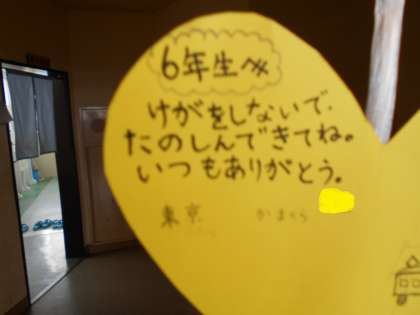 6年生へ
けがをしないで、
たのしんできてね。
いつもありがとう。
東京 かまくら